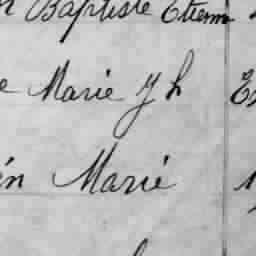 Baptiste Etienn
e Marie J h
in Marie